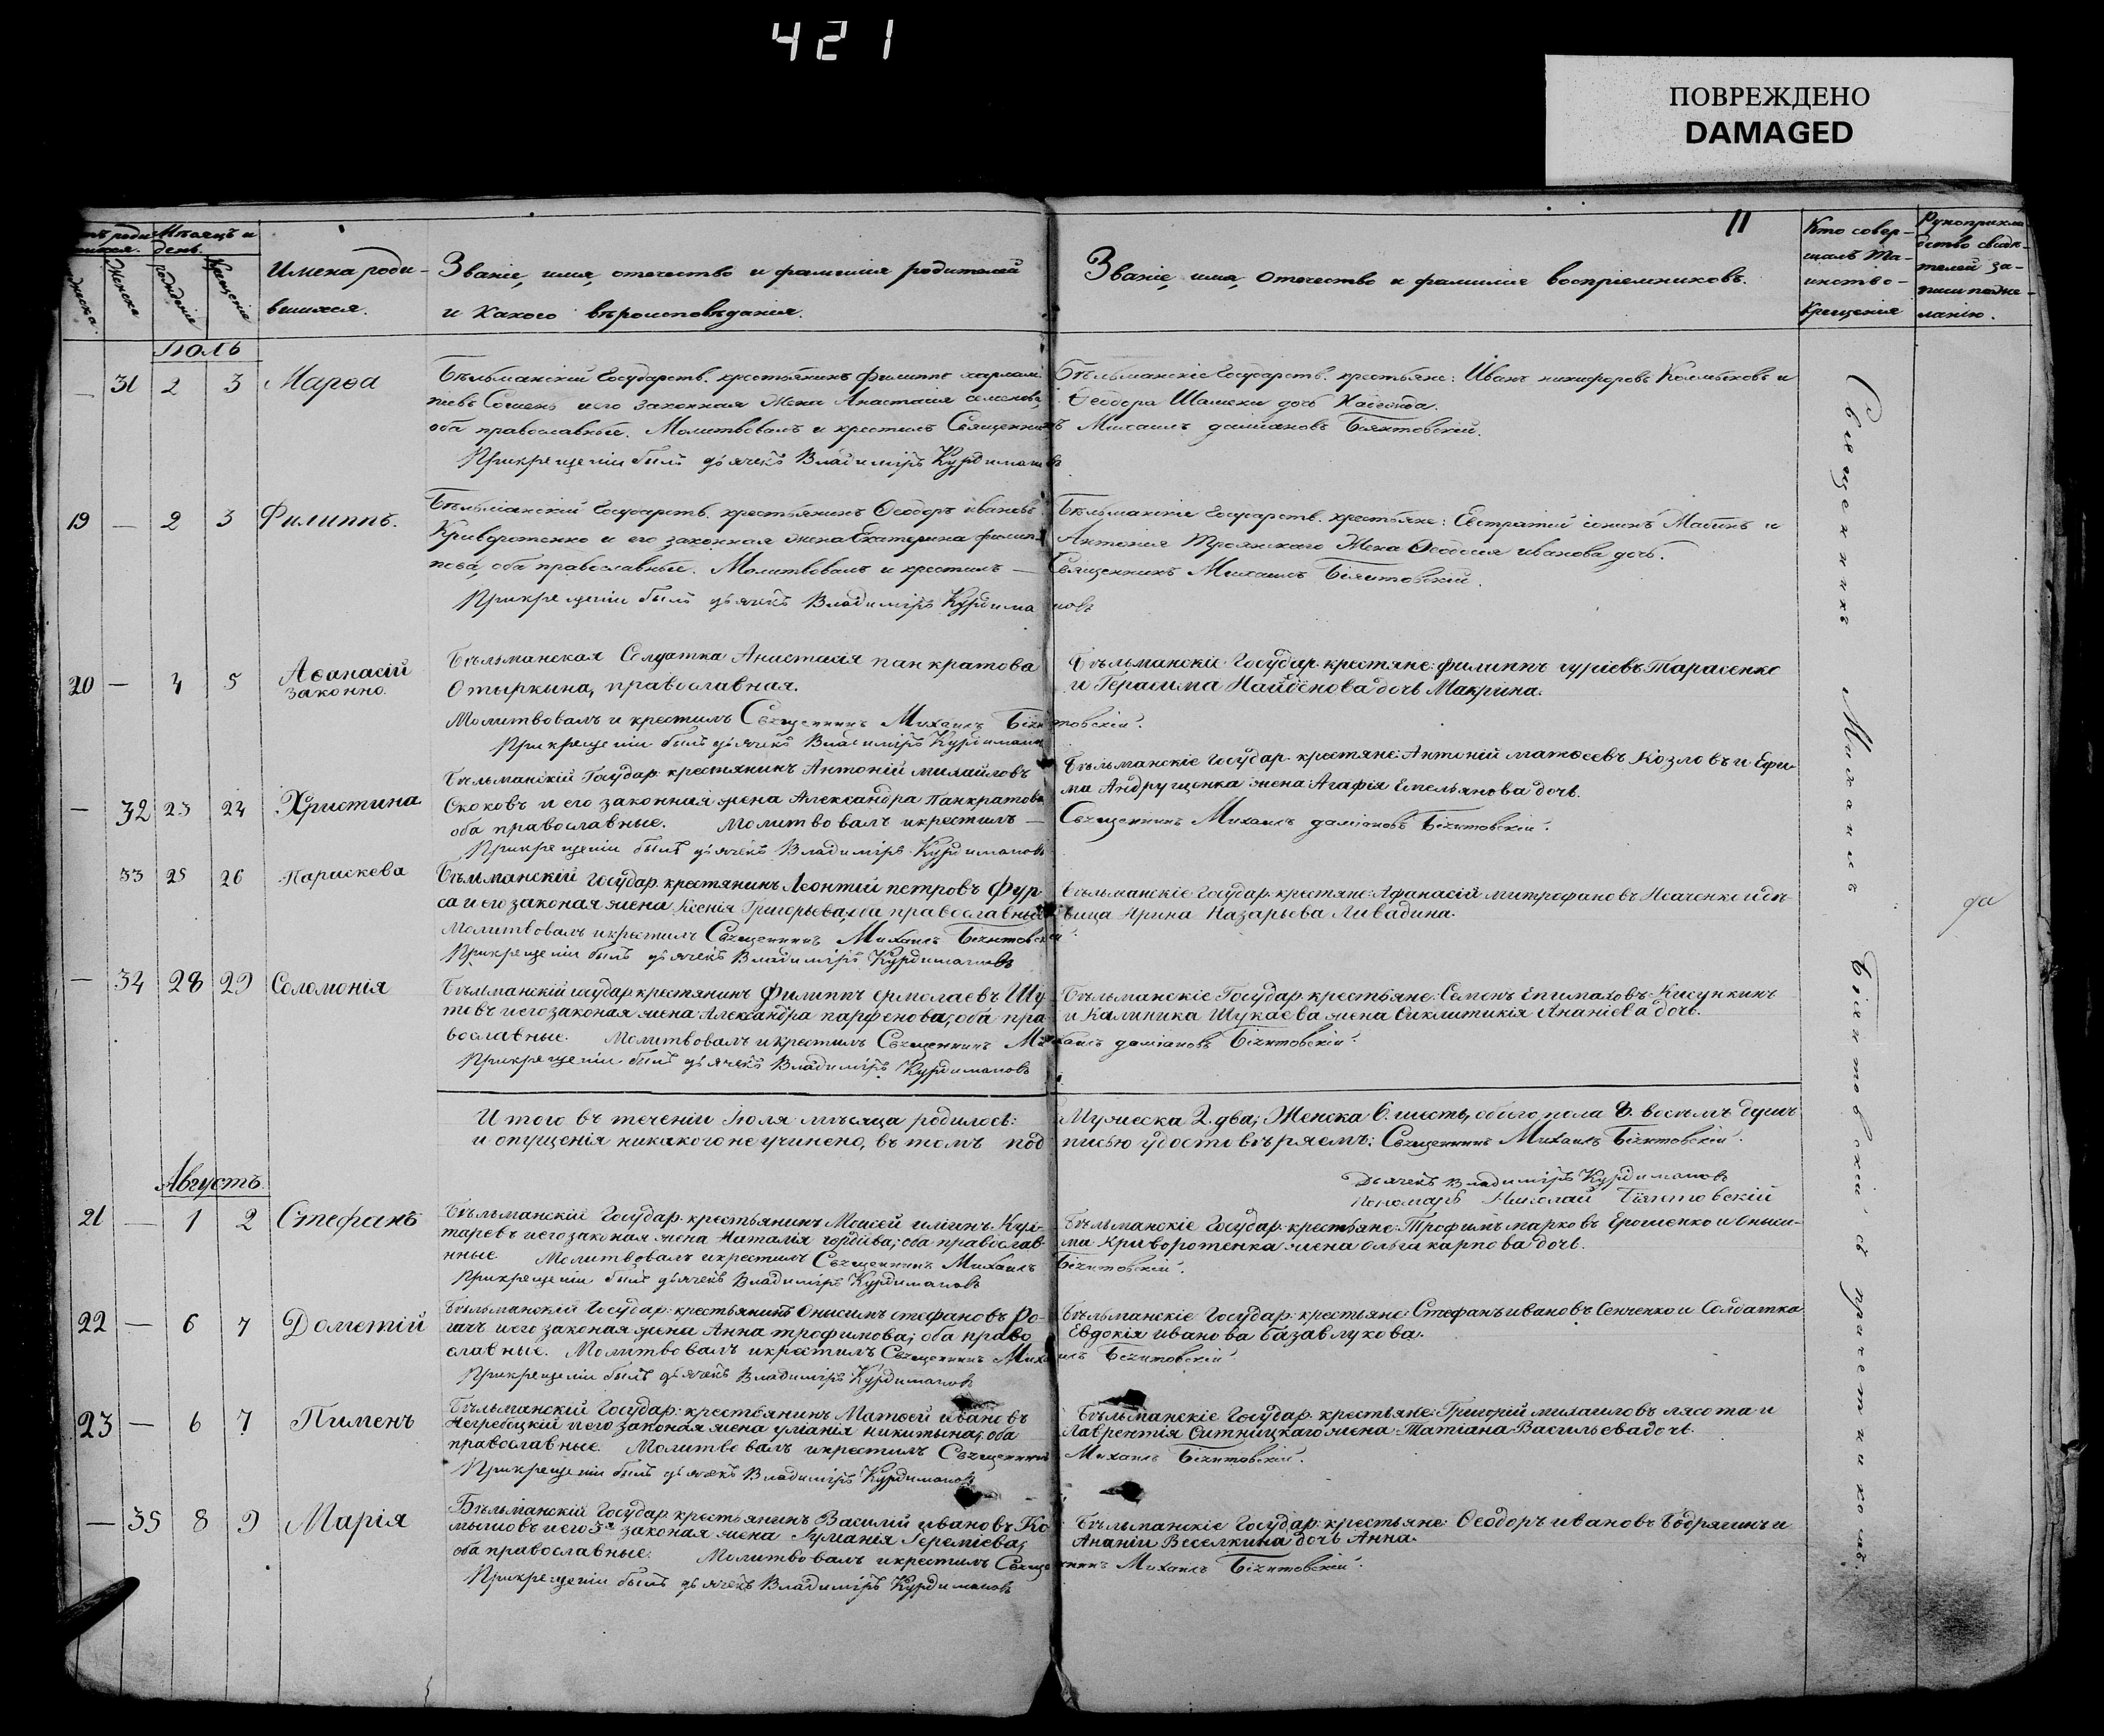 421
ПОВРЕЖДЕНО
DAMAGED
11
Мѣсяцъ и
день.
Женска
рожденія
Крещенія
Имена роди-
вшихся.
Званіе, имя, отечество и фамилія родителей
и какого вѣроисповѣданія.
Званіе, имя, отечество и фамиліе воспріемниковъ.
Кто совер-
шалъ та-
инство
Крещенія
Рукоприкла
дство свидѣ-
телей за-
писи по же-
ланію.
Іюль
— 31 2 3 Марѳа
Бѣльманскій Государств. крестьянинъ Филиппъ харлам
піевъ и его законная жена Анастасія семенова,
оба православные. Молитвовалъ и крестилъ Священникъ Михаилъ даміановъ Біянтовскій.
При крещеніи былъ дьячекъ Владиміръ Курдимановъ
Бѣльманскіе Государств. крестьяне: Иванъ никифоровъ и
Ѳеодора дочь
19 — 2 3 Филиппъ.
Бѣльманскій Государств. крестьянинъ Ѳеодоръ ивановъ
Криворотенко и его законная жена Екатерина филип
пова, оба православные. Молитвовалъ и крестилъ — Священникъ Михаилъ Біянтовскій.
При крещеніи былъ дьячекъ Владиміръ Курдимановъ
Бѣльманскіе Государств. крестьяне: Евстратій и
Антонія Троянскаго Жена Ѳеодосія иванова дочь.
20 — 4 5 Аѳанасій
законно.
Бѣльманская Солдатка Анистасія панкратова
Отыркина, православная.
Молитвовалъ и крестилъ Священникъ Михаилъ Біянтовскій.
При крещеніи былъ дьячекъ Владиміръ Курдимановъ
Бѣльманскіе Государ. крестяне: филиппъ гуріевъ Тарасенко
и Герасима Найденова дочь Макрина.
— 32 23 24 Христина
Бѣльманскій Государ. крестянинъ Антоній михайловъ
Скоковъ и его законная жена Александра Панкратова
оба православные. Молитвовалъ и крестилъ — Священникъ Михаилъ даміановъ Біянтовскій.
При крещеніи былъ дьячекъ Владиміръ Курдимановъ
Бѣльманскіе Государ. крестяне: Антоній матвеевъ Козловъ и Ефи-
ма Андрущенка жена Агафія Емельянова дочь.
33 25 26 Параскева
Бѣльманскій Государ. крестянинъ Леонтій петровъ Фур
са и его законая жена Ксенія Григорьева, оба православные
Молитвовалъ и крестилъ Священникъ Михаилъ Біянтовскій
При крещеніи былъ дьячекъ Владиміръ Курдимановъ
Бѣльманскіе Государ. крестяне: Афанасій митрофановъ Исаченко и дѣ
вица Ярина Назарьева Ливадина.
да
— 34 28 29 Соломонія
Бѣльманскій государ. крестянинъ Филиппъ ермолаевъ Шу
товъ и его законая жена Александра парфенова, оба пра
вославные. Молитвовалъ и крестилъ Священникъ Михаилъ даміановъ Біянтовскій.
При крещеніи былъ дьячекъ Владиміръ Курдимановъ
Бѣльманскіе Государ. крестьяне: Семенъ Епимаховъ Кисункинъ
и Калиника Шукаева жена Сиклитикія Ананіева дочь.
Итого въ теченіи Іюля мѣсяца родилось: Мужеска 2. два; Женска 6. шесть, обоего пола 8. восьмъ душъ
и опущенія никакого не учинено, въ томъ подписью удостовѣряемъ: Священникъ Михаилъ Біянтовскій.
Дьячекъ Владиміръ Курдимановъ
Пономарь Николай Біянтовскій
Августъ.
21 — 1 2 Стефанъ
Бѣльманскій Государ. крестьянинъ Моисей иліинъ Кух-
таревъ и его законая жена Наталія гордіева, оба православ-
нные Молитвовалъ и крестилъ Священникъ Михаилъ Біянтовскій.
При крещеніи былъ дьячекъ Владиміръ Курдимановъ
Бѣльманскіе Государ. крестьяне: Трофимъ марковъ Ерошенко и Ониси-
ма Криворотенка жена ольга карпова дочь.
22 — 6 7 Дометій
Бѣльманскій Государ. крестьянинъ Онисимъ стефановъ Ро-
гачъ и его законая жена Анна трофимова; оба право
славные. Молитвовалъ и крестилъ Священникъ Михаилъ Біянтовскій.
При крещеніи былъ дьячекъ Владиміръ Курдимановъ
Бѣльманскіе Государ. крестьяне: Стефанъ ивановъ Сенченко и Солдатка
Евдокія иванова базавлукова.
23 — 6 7 Пименъ
Бѣльманскій Государ. крестьянинъ Матвей ивановъ
Негребецкій и его законая жена уліанія никитына; оба
православные. Молитвовалъ и крестилъ Священникъ Михаилъ Біянтовскій.
При крещеніи былъ дьячекъ Владиміръ Курдимановъ
Бѣльманскіе Государ. крестьяне: Григорій михаиловъ лясота и
Лаврентія Ситницкаго жена Татіана Васильева дочь.
— 35 8 9 Марія
Бѣльманскій Государ. крестьянинъ Василій ивановъ Ко
мышовъ и его законая жена Іуліанія Іереміева;
оба православные. Молитвовалъ и крестилъ Священникъ Михаилъ Біянтовскій.
При крещеніи былъ дьячекъ Владиміръ Курдимановъ
Бѣльманскіе Государ. крестьяне: Ѳеодоръ ивановъ Бодрягинъ и
Ананіи Веселкина дочь Анна.
Священникъ Михаилъ Біянтовскій съ причетниками.